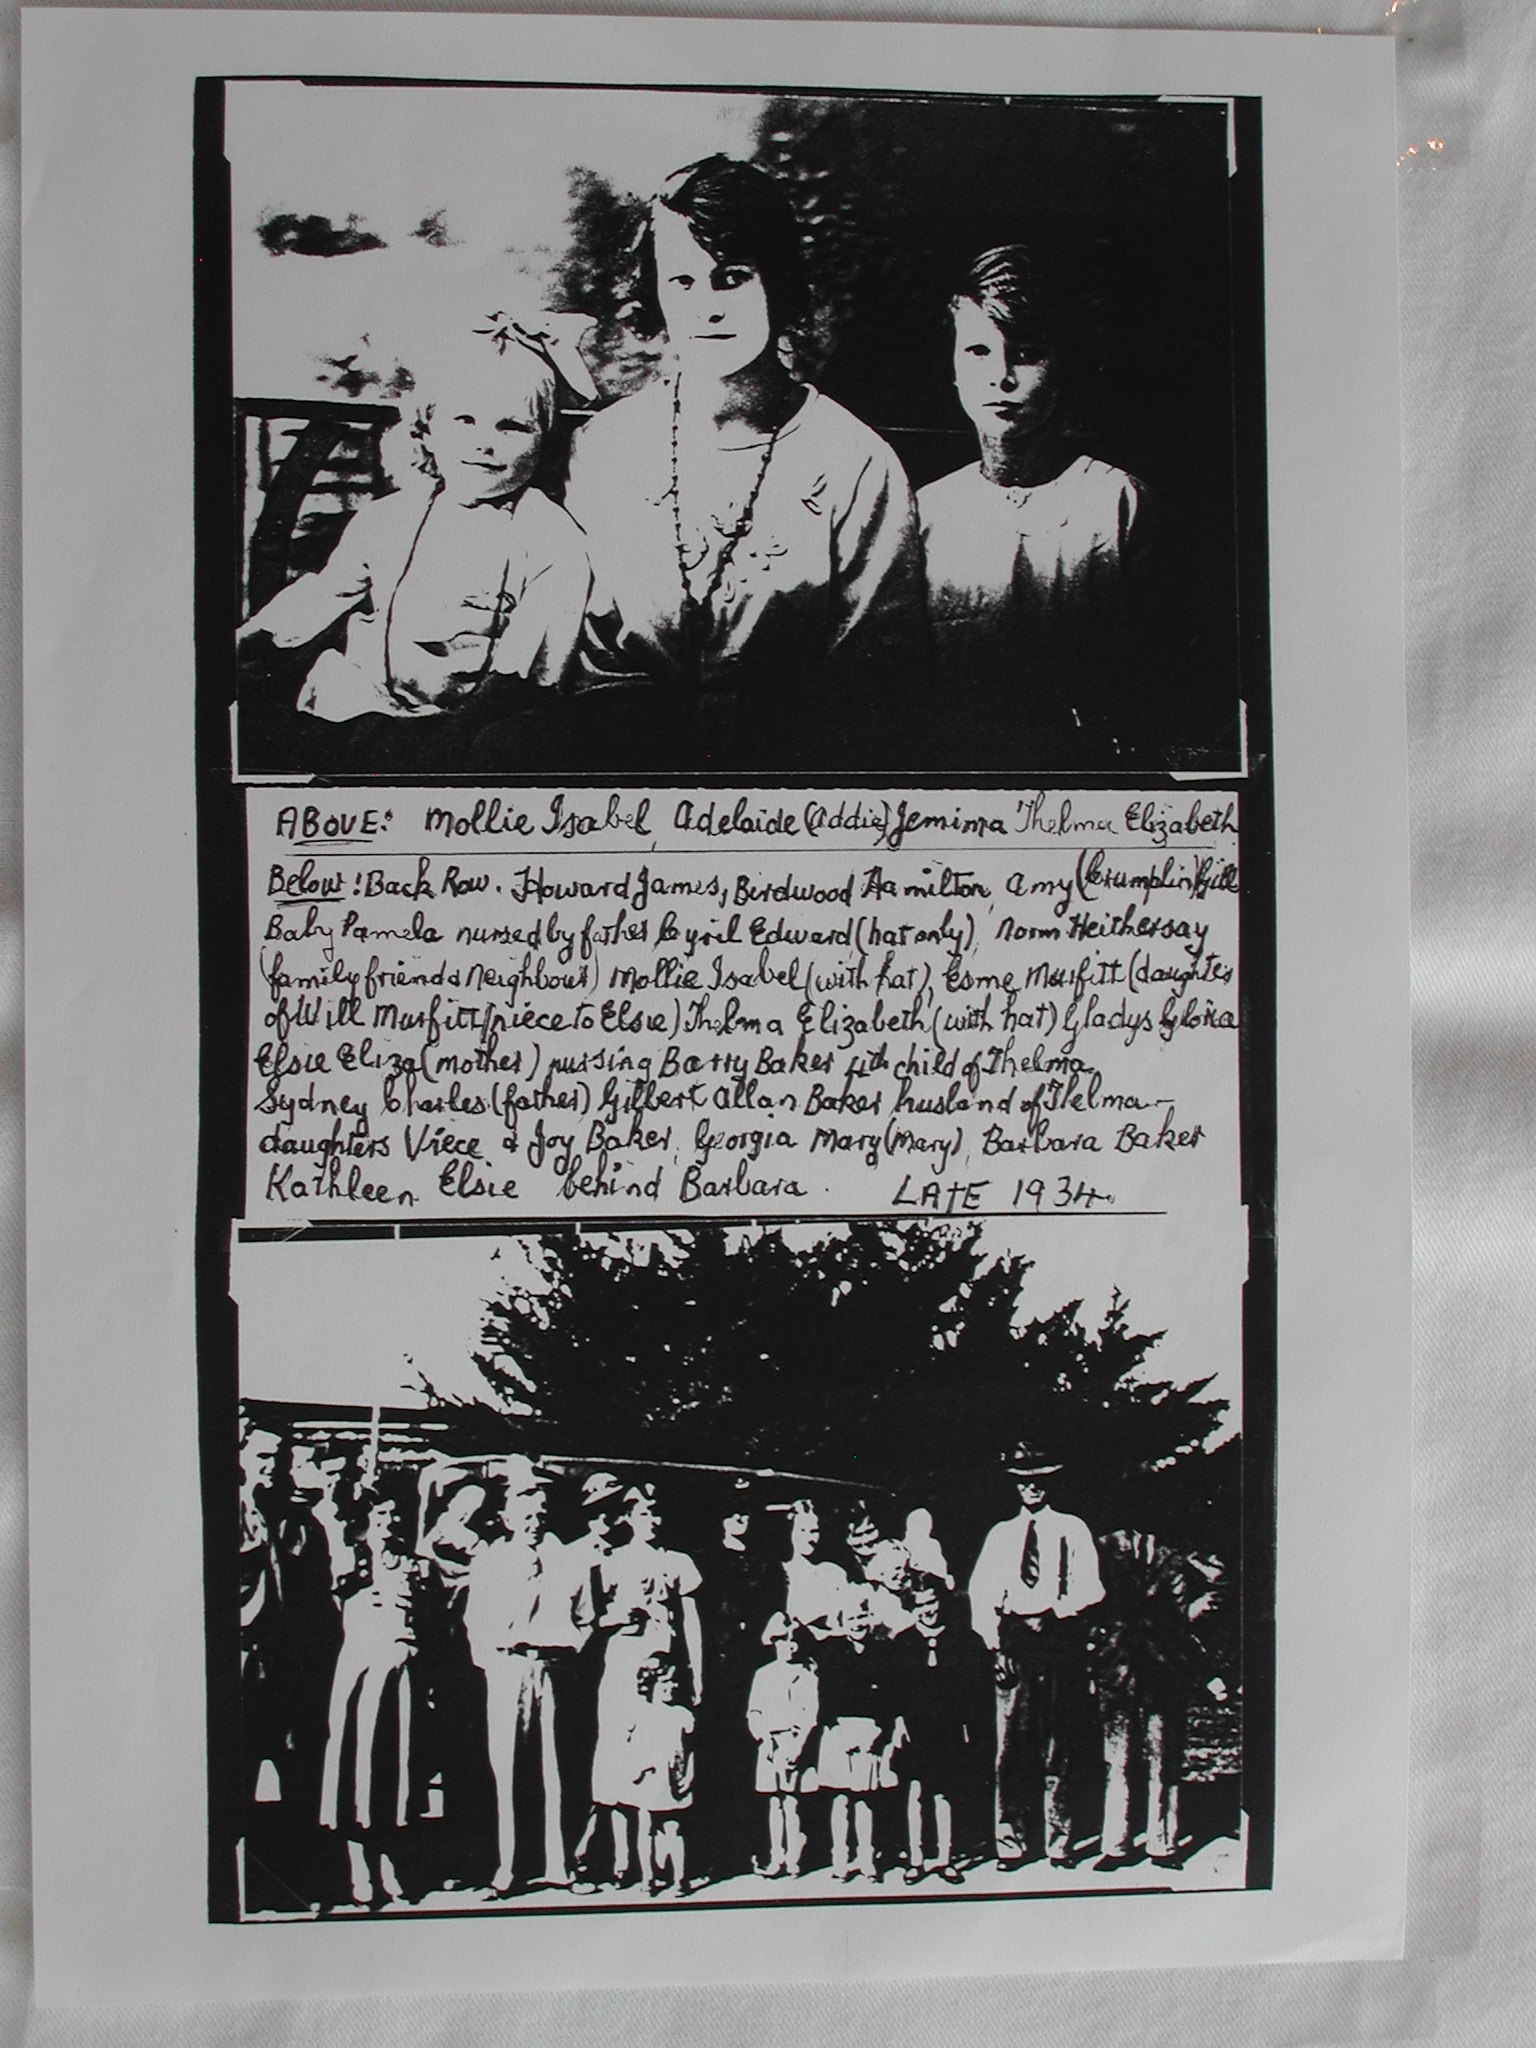 ABOVE: Mollie Isabel, Adelaide (Addie) Jemima Thelma Elizabeth
Below! Back Row. Howard James, Birdwood Hamilton, Amy (Crumplin) Gill
Baby Pamela nursed by father Cyril Edward (hat only), Norm Heithersay
(family friend & Neighbour) Mollie Isabel (with hat), Esme Murfitt (daughter
of Will Murfitt/niece to Elsie) Thelma Elizabeth (with hat) Gladys Gloria
Elsie Eliza (mother) nursing Barry Baker 4th child of Thelma
Sydney Charles (father) Gilbert Allan Baker husband of Thelma -
daughters Viece & Joy Baker, Georgia Mary (Mary), Barbara Baker
Kathleen Elsie behind Barbara. LATE 1934.